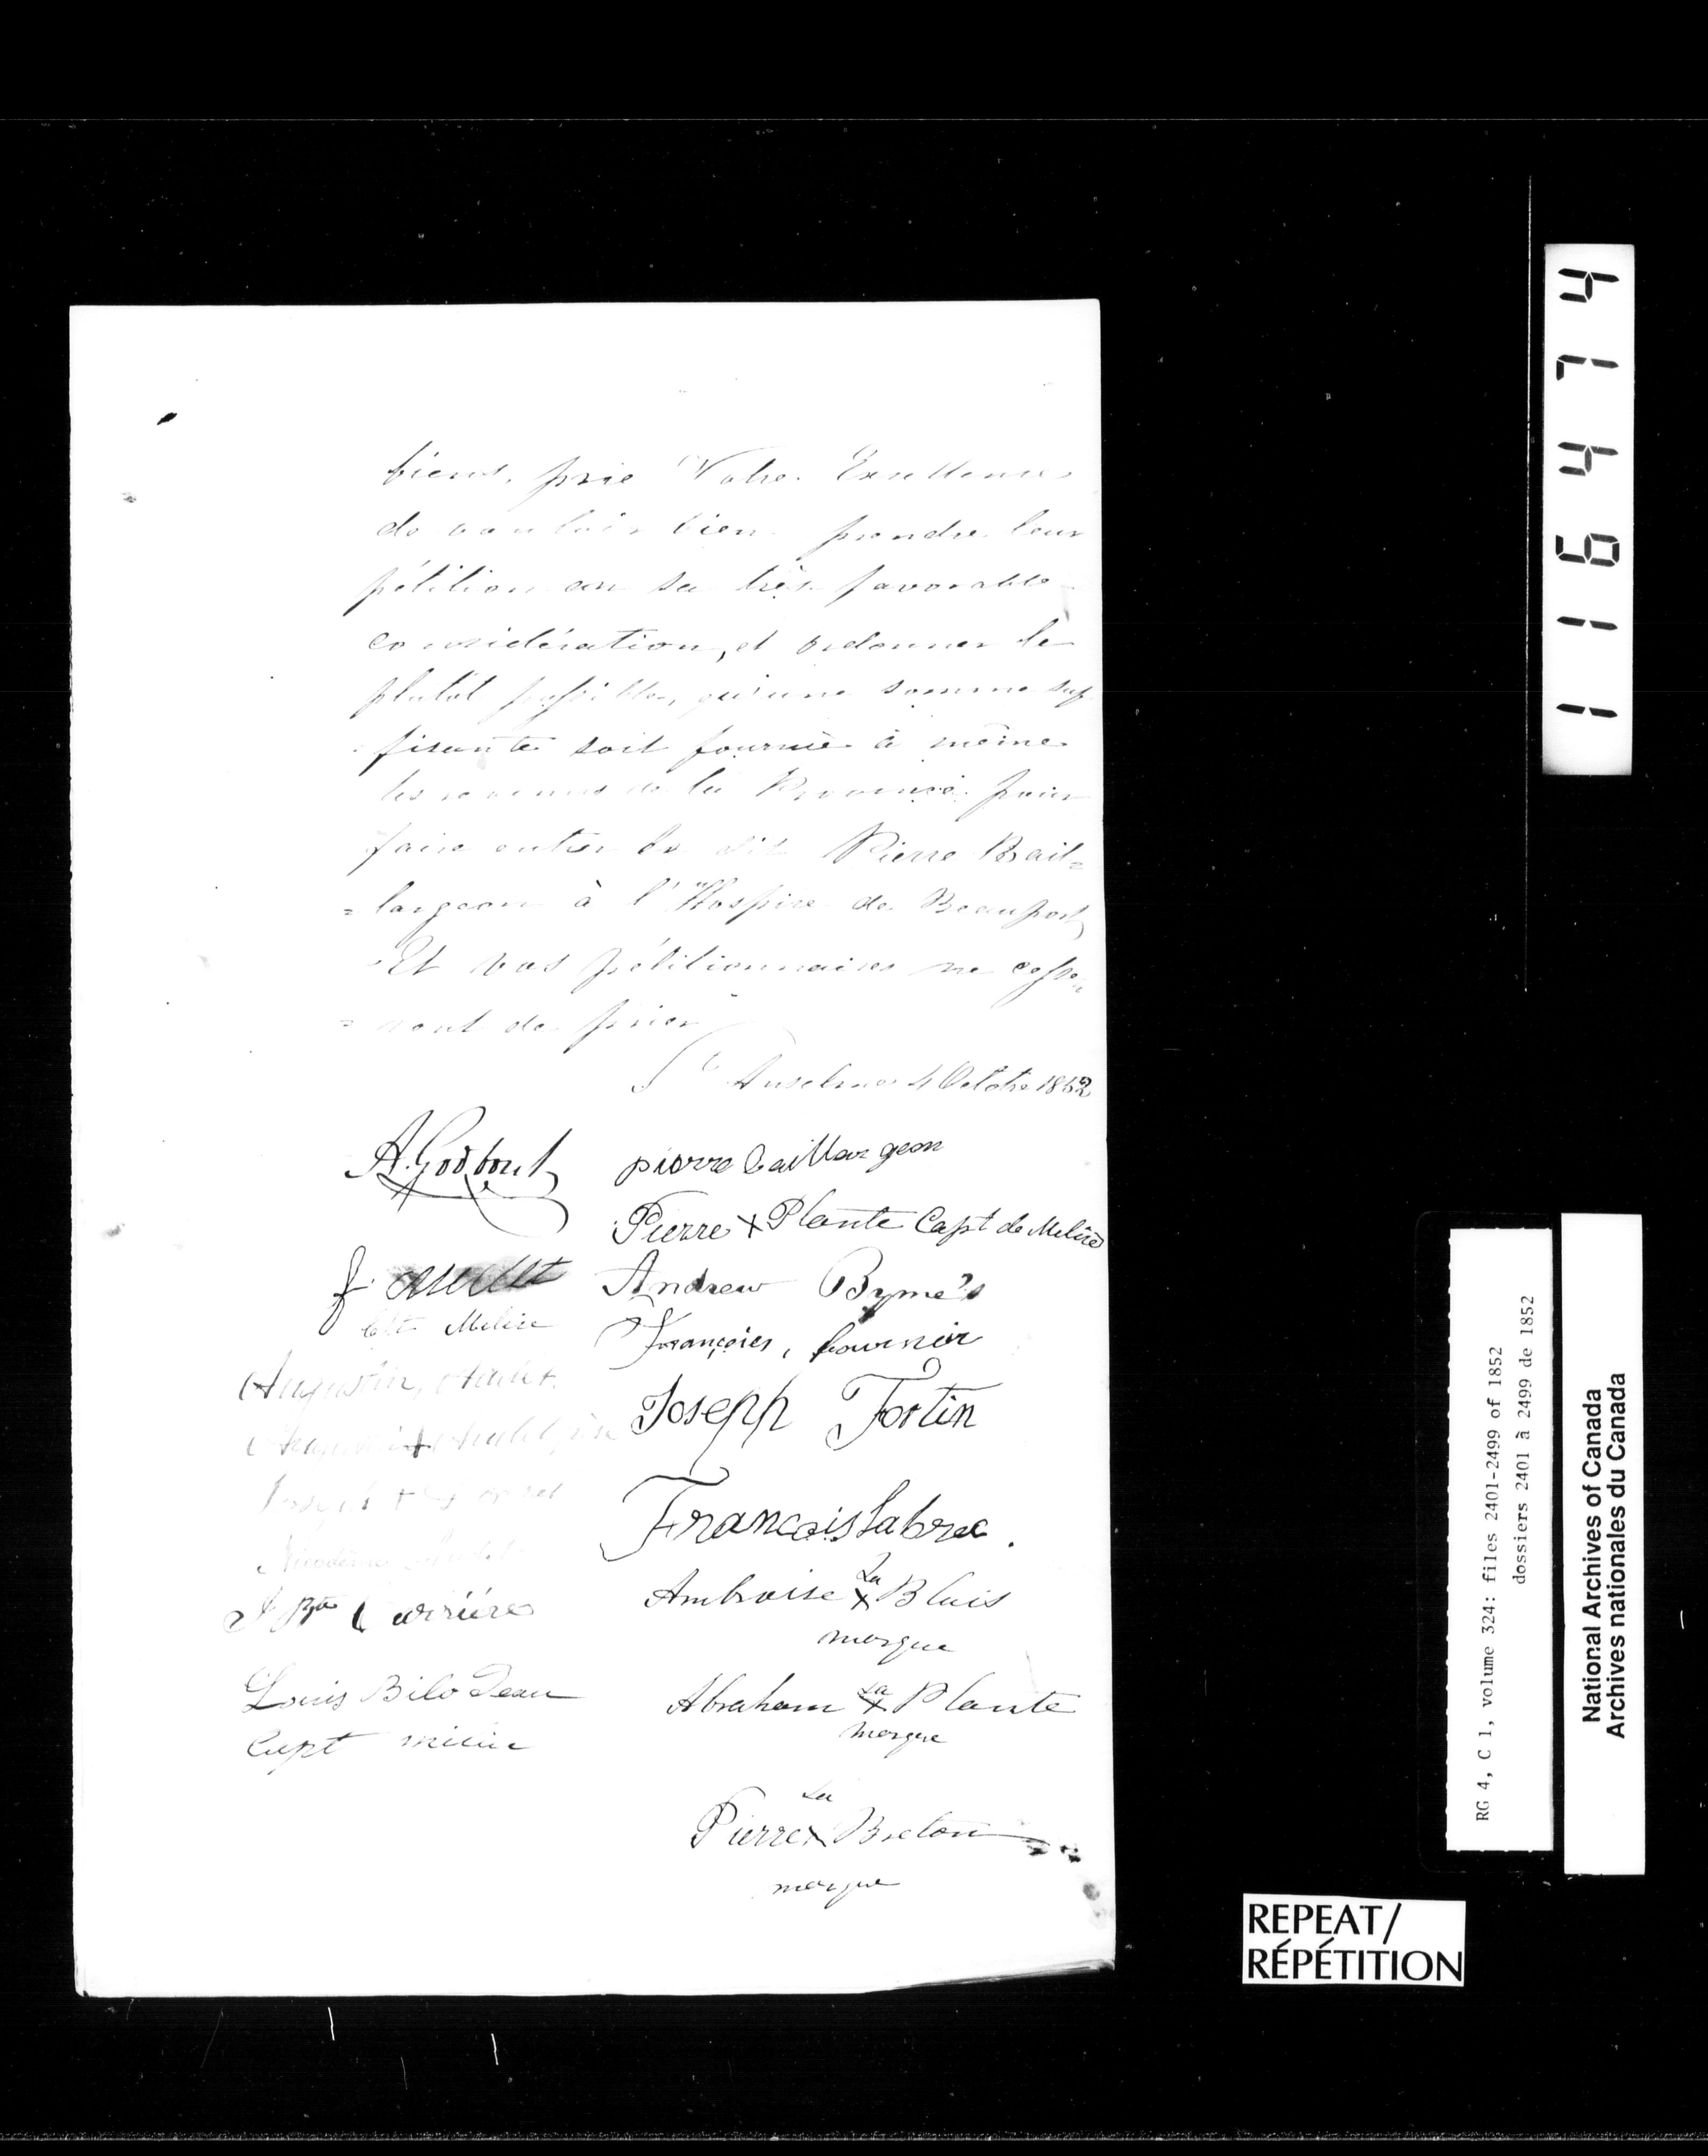 biens, prie Votre Excellence
de vouloir bien prendre leur
pétition en sa très favorable
considération, et ordonner le
plutôt possible, qu'une somme suf
= fisante soit fournie à même
les revenus de la Province pour
faire entrer le dit Pierre Bail=
= largeon à l'Hospice de Beauport
Et vos pétitionnaires ne cesse=
= ront de prier
St Anselme 4 Octobre 1852
A. Godbout
pierre baillargeon
Pierre X Plante Capt de Melice
f. Audet
Melice
Andrew Byrne's
François, fournier
Augustin, Audet
Joseph Fortin
Augustin + Audet
Joseph +
Francois Labrec.
Nicodeme Audet
Ambroise La X Blais
marque
J Bte Carrière
Louis Bilodeau
Capt milice
Abraham La X Plante
marque
Pierre La X Breton
marque
116474
RG 4, C 1, volume 324: files 2401-2499 of 1852
dossiers 2401 à 2499 de 1852
National Archives of Canada
Archives nationales du Canada
REPEAT/
RÉPÉTITION